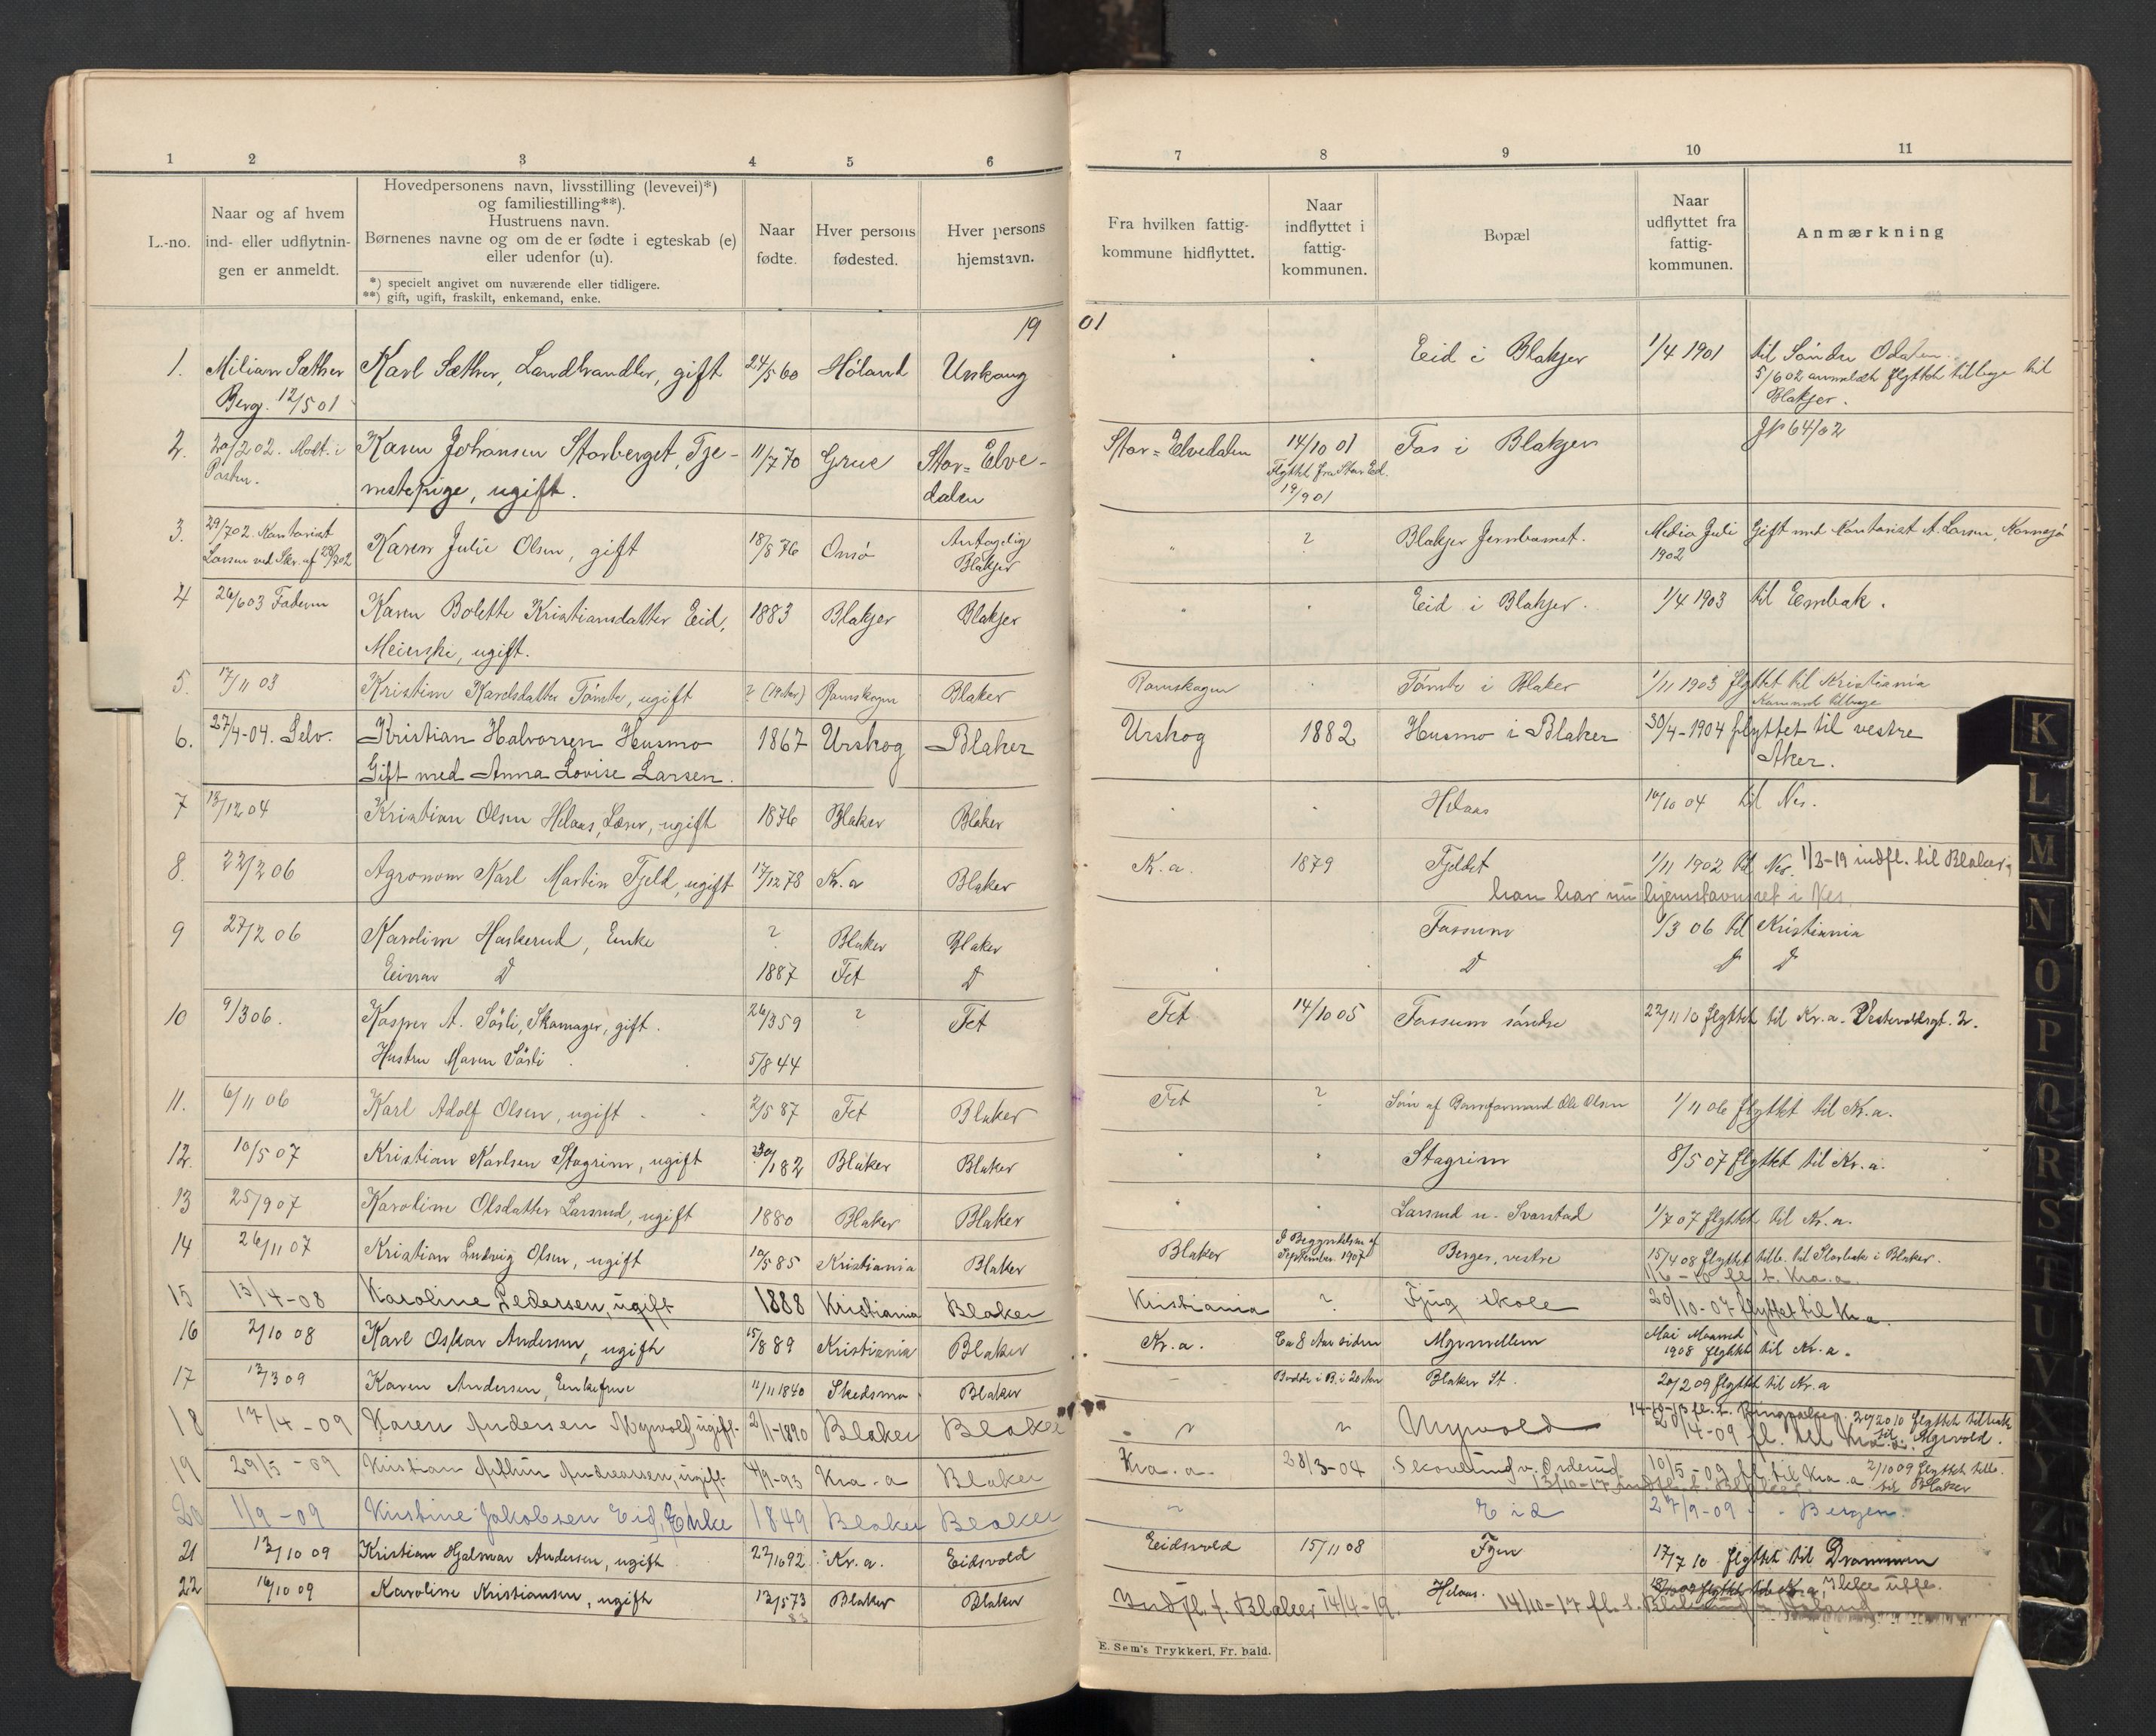 1 2 3 4 5 6
L.-no.
Naar og af hvem
ind- eller udflytnin-
gen er anmeldt.
Hovedpersonens navn, livsstilling (levevei)*)
og familiestilling**).
Hustruens navn.
Børnenes navne og om de er fødte i egteskab (e)
eller udenfor (u).
*) specielt angivet om nuværende eller tidligere.
**) gift, ugift, fraskilt, enkemand, enke.
Naar
fødte.
Hver persons
fødested.
Hver persons
hjemstavn.
7 8 9 10 11
Fra hvilken fattig-
kommune hidflyttet.
Naar
indflyttet i
fattig-
kommunen.
Bopæl
Naar
udflyttet fra
fattig-
kommunen.
Anmærkning
19 01
1. Milian Sæther Karl Sæther, Landhandler, gift 24/5 60 Høland Urskoug Eid i Blakjer 1/4 1901 til Søndre Odalen.
Berg. 12/5 01 5/6 02 anmeldt flyttet tilbage til
Blakjer.
2. 20/2 02. Modt. i Karen Johansen Storberget, Tje- 11/7 70 Grue Stor-Elve- Stor-Elvedalen 14/10 01 Fos i Blakjer JP 64/02
Posten. nestepige, ugift. dalen Flyttet fra Stor Eld.
19/9 01
3. 29/7 02. Kontorist Karen Julie Olsen, gift 18/8 76 Onsø Antagelig ? Blakjer Jernbanest. Medio Juli Gift med Kontorist A. Larsen, Kornsjø
Larsen ved Skr. af 28/7 02 Blakjer 1902
4 26/6 03 Faderen Karen Bolette Kristiansdatter Eid, 1883 Blakjer Blakjer Eid i Blakjer. 1/4 1903 til Enebak.
Meierske, ugift.
5. 17/11 03 Kristine Karelsdatter Tømte, ugift ? (19 aar) Romskogen Blaker Romskogen Tømte i Blaker 1/11 1903 flyttet til Kristiania
Kommet tilbage
6. 27/4-04. Selv. Kristian Halvorsen Husmo 1867 Urskog Blaker Urskog 1882 Husmo i Blaker 30/4-1904 flyttet til vestre
Gift med Anna Lovise Larsen. Aker.
7 13/12 04 Kristian Olsen Helaas, Lærer, ugift 1876 Blaker Blaker Helaas 10/10 04 til Nes.
8. 22/2 06 Agronom Karl Martin Fjeld, ugift 17/12 78 Kr.a Blaker Kr.a. 1879 Fjeldet 1/11 1902 til Nes. 1/3-19 indfl. til Blaker,
han har nu hjemstavnsret i Nes.
9 27/2 06 Karoline Haskerud, Enke ? Blaker Blaker Fossum 1/3 06 til Kristiania
Einar D 1887 Fet D D D D
10 9/3 06. Kasper A. Sørli, Skomager, gift. 26/3 59 ? Fet Fet 14/10 05 Fossum søndre 22/11 10 flyttet til Kr.a. Vestervoldsgt. 2.
Hustru Maren Sørli 5/8 44
11. 6/11 06 Karl Adolf Olsen, ugift 2/5 87 Fet Blaker Fet ? Søn af Baneformand Ole Olsen 1/11 06 flyttet til Kr.a.
12. 10/5 07 Kristian Karlsen Stagrim, ugift 30/1 82 Blaker Blaker Stagrim 8/5 07 flyttet til Kr.a.
13 25/9 07 Karoline Olsdatter Larsrud, ugift 1880 Blaker Blaker Larsrud u. Svarstad 1/7 07 flyttet til Kr.a.
14 26/11 07 Kristian Ludvig Olsen, ugift 10/5 85 Kristiania Blaker Blaker I Begyndelsen af Berger, vestre 15/4 08 flyttet tilb. til Storbak i Blaker.
September 1907 1/6-10 fl. t. Kra.a.
15 13/4-08 Karoline Pedersen, ugift 1888 Kristiania Blaker Kristiania ? Fjug skole 20/10-07 flyttet til Kra.
16 2/10 08 Karl Oskar Andersen, ugift 15/8 89 Kristiania Blaker Kr.a. Ca 8 Aar siden Myrmellem Mai Maaned
1908 flyttet til Kr.a.
17 12/3 09 Karen Andersen, Enkefrue 11/11 1840 Skedsmo Blaker Bodde i B. i 20 Aar Blaker St. 20/2 09 flyttet til Kr.a
18 17/4-09 Karen Andersen Myrvold, ugift. 2/1-1890 Blaker Blaker Myrvold 14-10-13 fl. t. 20/20 10 flyttet tilbak
20/4-09 fl. til Kra.a. til Myrvold.
19 29/5-09 Kristian Arthur Andreassen, ugift. 4/9-93 Kra.a Blaker Kra.a. 28/3-04 Skovlund v. Orderud. 10/5-09 fl. til Kra.a. 2/10 09 flyttet tilb.
13/10-17 indfl. t. Blaker til Blaker
20 1/9-09 Kristine Jakobsen Eid, Enke 1849 Blaker Blaker Eid 27/9-09 Bergen.
21 12/10 09 Kristian Hjalmar Andersen, ugift 22/10 92 Kr.a. Eidsvold Eidsvold 15/11 08 Fjen 17/7 10 flyttet til Drammen
22 16/10 09 Karoline Kristiansen, ugift 13/5 73 Blaker Blaker Helaas. flyttet til Kr.a, Ikke
83 Indfl. t. Blaker 14/4-19. 14/10-17 fl. t.
E. Sem's Trykkeri, Fr.hald.
K
L
M
N
O
P
Q
R
S
T
U
V
X
Y
Z